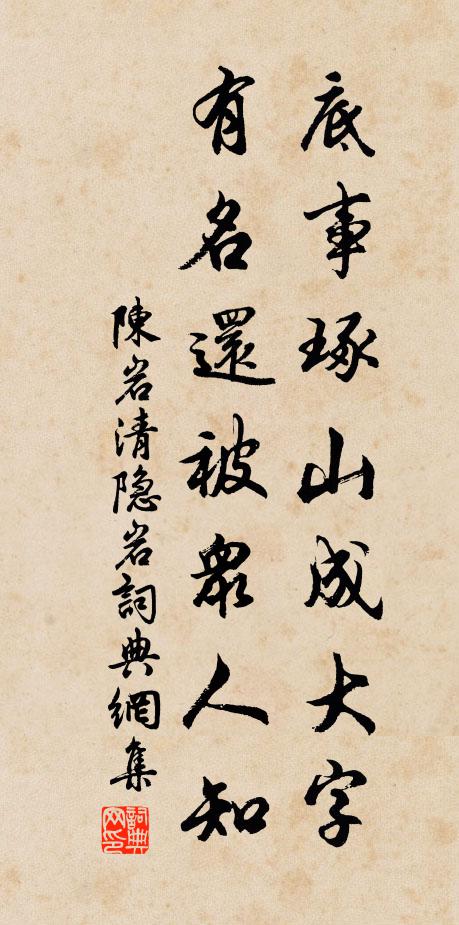 底事琢山成大字
有名還被衆人知
陳岩清隐岩詞典網集
詞典
网印